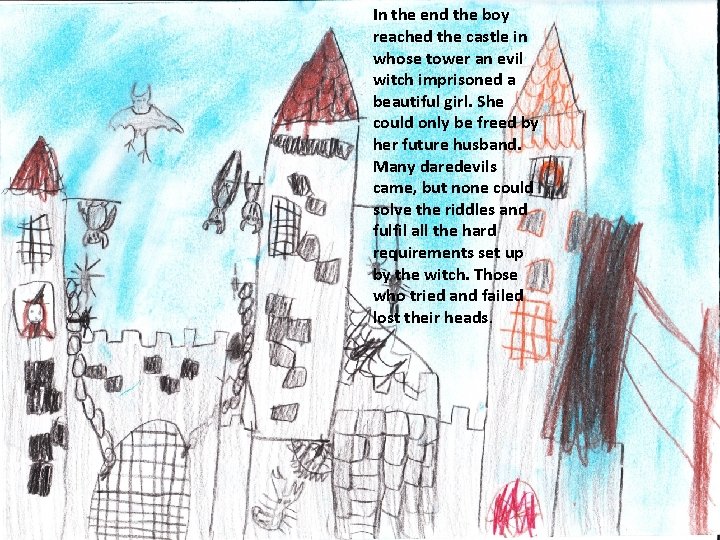 In the end the boy
reached the castle in
whose tower an evil
witch imprisoned a
beautiful girl. She
could only be freed by
her future husband.
Many daredevils
came, but none could
solve the riddles and
fulfil all the hard
requirements set up
by the witch. Those
who tried and failed
lost their heads.